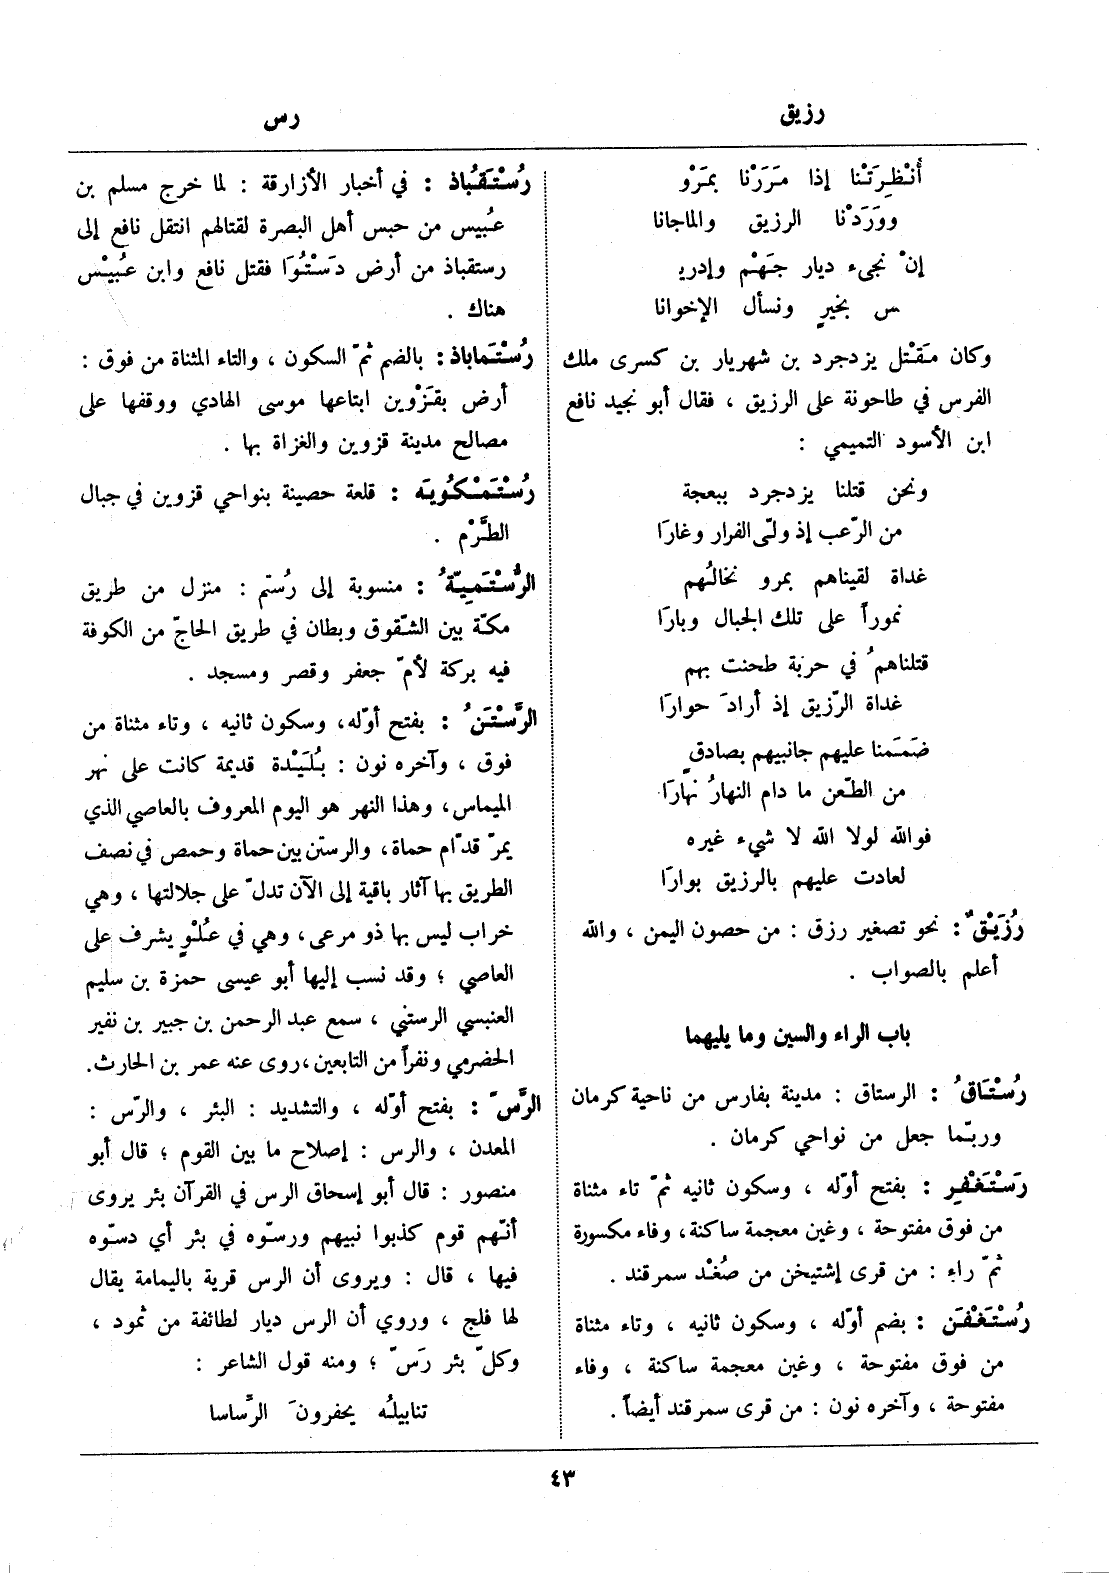 رزيق
رس
أَنْظِرَتْنا إذا مَرَرْنا بمَرْوِ
ووَرَدْنا الرزيق والماجانا
إنْ نجيء ديار جَهْمٍ وإدريـ
ـس بخيرٍ ونسأل الإخوانا
وكان مَقْتل يزدجرد بن شهريار بن كسرى ملك
الفرس في طاحونة على الرزيق ، فقال أبو نجيد نافع
ابن الأسود التميمي :
ونحن قتلنا يزدجرد ببعجة
من الرّعب إذ ولّى الفرار وغارَا
غداة لقيناهم بمرو نخالُهم
نموراً على تلك الجبال وبارَا
قتلناهمُ في حربة طحنت بهم
غداة الرّزيق إذ أرادَ حوارَا
ضَمَمنا عليهم جانبيهم بصادقٍ
من الطّعن ما دام النهارُ نهارَا
فوالله لولا الله لا شيء غيره
لعادت عليهم بالرزيق بوارَا
رُزَيْقٌ : نحو تصغير رزق : من حصون اليمن ، والله
أعلم بالصواب .
باب الراء والسين وما يليهما
رُسْتَاقُ : الرستاق : مدينة بفارس من ناحية كرمان
وربّما جعل من نواحي كرمان .
رَسْتَغْفِر : بفتح أوّله ، وسكون ثانيه ثمّ تاء مثناة
من فوق مفتوحة ، وغين معجمة ساكنة ، وفاء مكسورة
ثمّ راء : من قرى إشتيخن من صُغْد سمرقند .
رُسْتَغْفَن : بضم أوّله ، وسكون ثانيه ، وتاء مثناة
من فوق مفتوحة ، وغين معجمة ساكنة ، وفاء
مفتوحة ، وآخره نون : من قرى سمرقند أيضاً .
رُسْتَقُباذ : في أخبار الأزارقة : لما خرج مسلم بن
عُبيس من حبس أهل البصرة لقتالهم انتقل نافع إلى
رستقباذ من أرض دَسْتُوَا فقتل نافع وابن عُبيْس
هناك .
رُسْتَماباذ : بالضم ثمّ السكون ، والتاء المثناة من فوق :
أرض بقَزْوين ابتاعها موسى الهادي ووقفها على
مصالح مدينة قزوين والغزاة بها .
رُسْتَمْكُويَه : قلعة حصينة بنواحي قزوين في جبال
الطَّرْم .
الرُّسْتَمِيّةُ : منسوبة إلى رُستم : منزل من طريق
مكّة بين الشّقوق وبطان في طريق الحاجّ من الكوفة
فيه بركة لأمّ جعفر وقصر ومسجد .
الرَّسْتَنُ : بفتح أوّله ، وسكون ثانيه ، وتاء مثناة من
فوق ، وآخره نون : بُلَيْدة قديمة كانت على نهر
الميماس ، وهذا النهر هو اليوم المعروف بالعاصي الذي
يمرّ قدّام حماة ، والرستن بين حماة وحمص في نصف
الطريق بها آثار باقية إلى الآن تدلّ على جلالتها ، وهي
خراب ليس بها ذو مرعى ، وهي في عُلْوٍ يشرف على
العاصي ؛ وقد نسب إليها أبو عيسى حمزة بن سليم
العنبسي الرستني ، سمع عبد الرحمن بن جبير بن نفير
الحضرمي ونفراً من التابعين ، روى عنه عمر بن الحارث .
الرَّسّ : بفتح أوّله ، والتشديد : البئر ، والرّس :
المعدن ، والرس : إصلاح ما بين القوم ؛ قال أبو
منصور : قال أبو إسحاق الرس في القرآن بئر يروى
أنّهم قوم كذبوا نبيهم ورسّوه في بئر أي دسّوه
فيها ، قال : ويروى أن الرس قرية باليمامة يقال
لها فلج ، وروي أن الرس ديار لطائفة من ثمود ،
وكلّ بئر رَسّ ؛ ومنه قول الشاعر :
تنابيلُه يحفرونَ الرِّساسا
٤٣